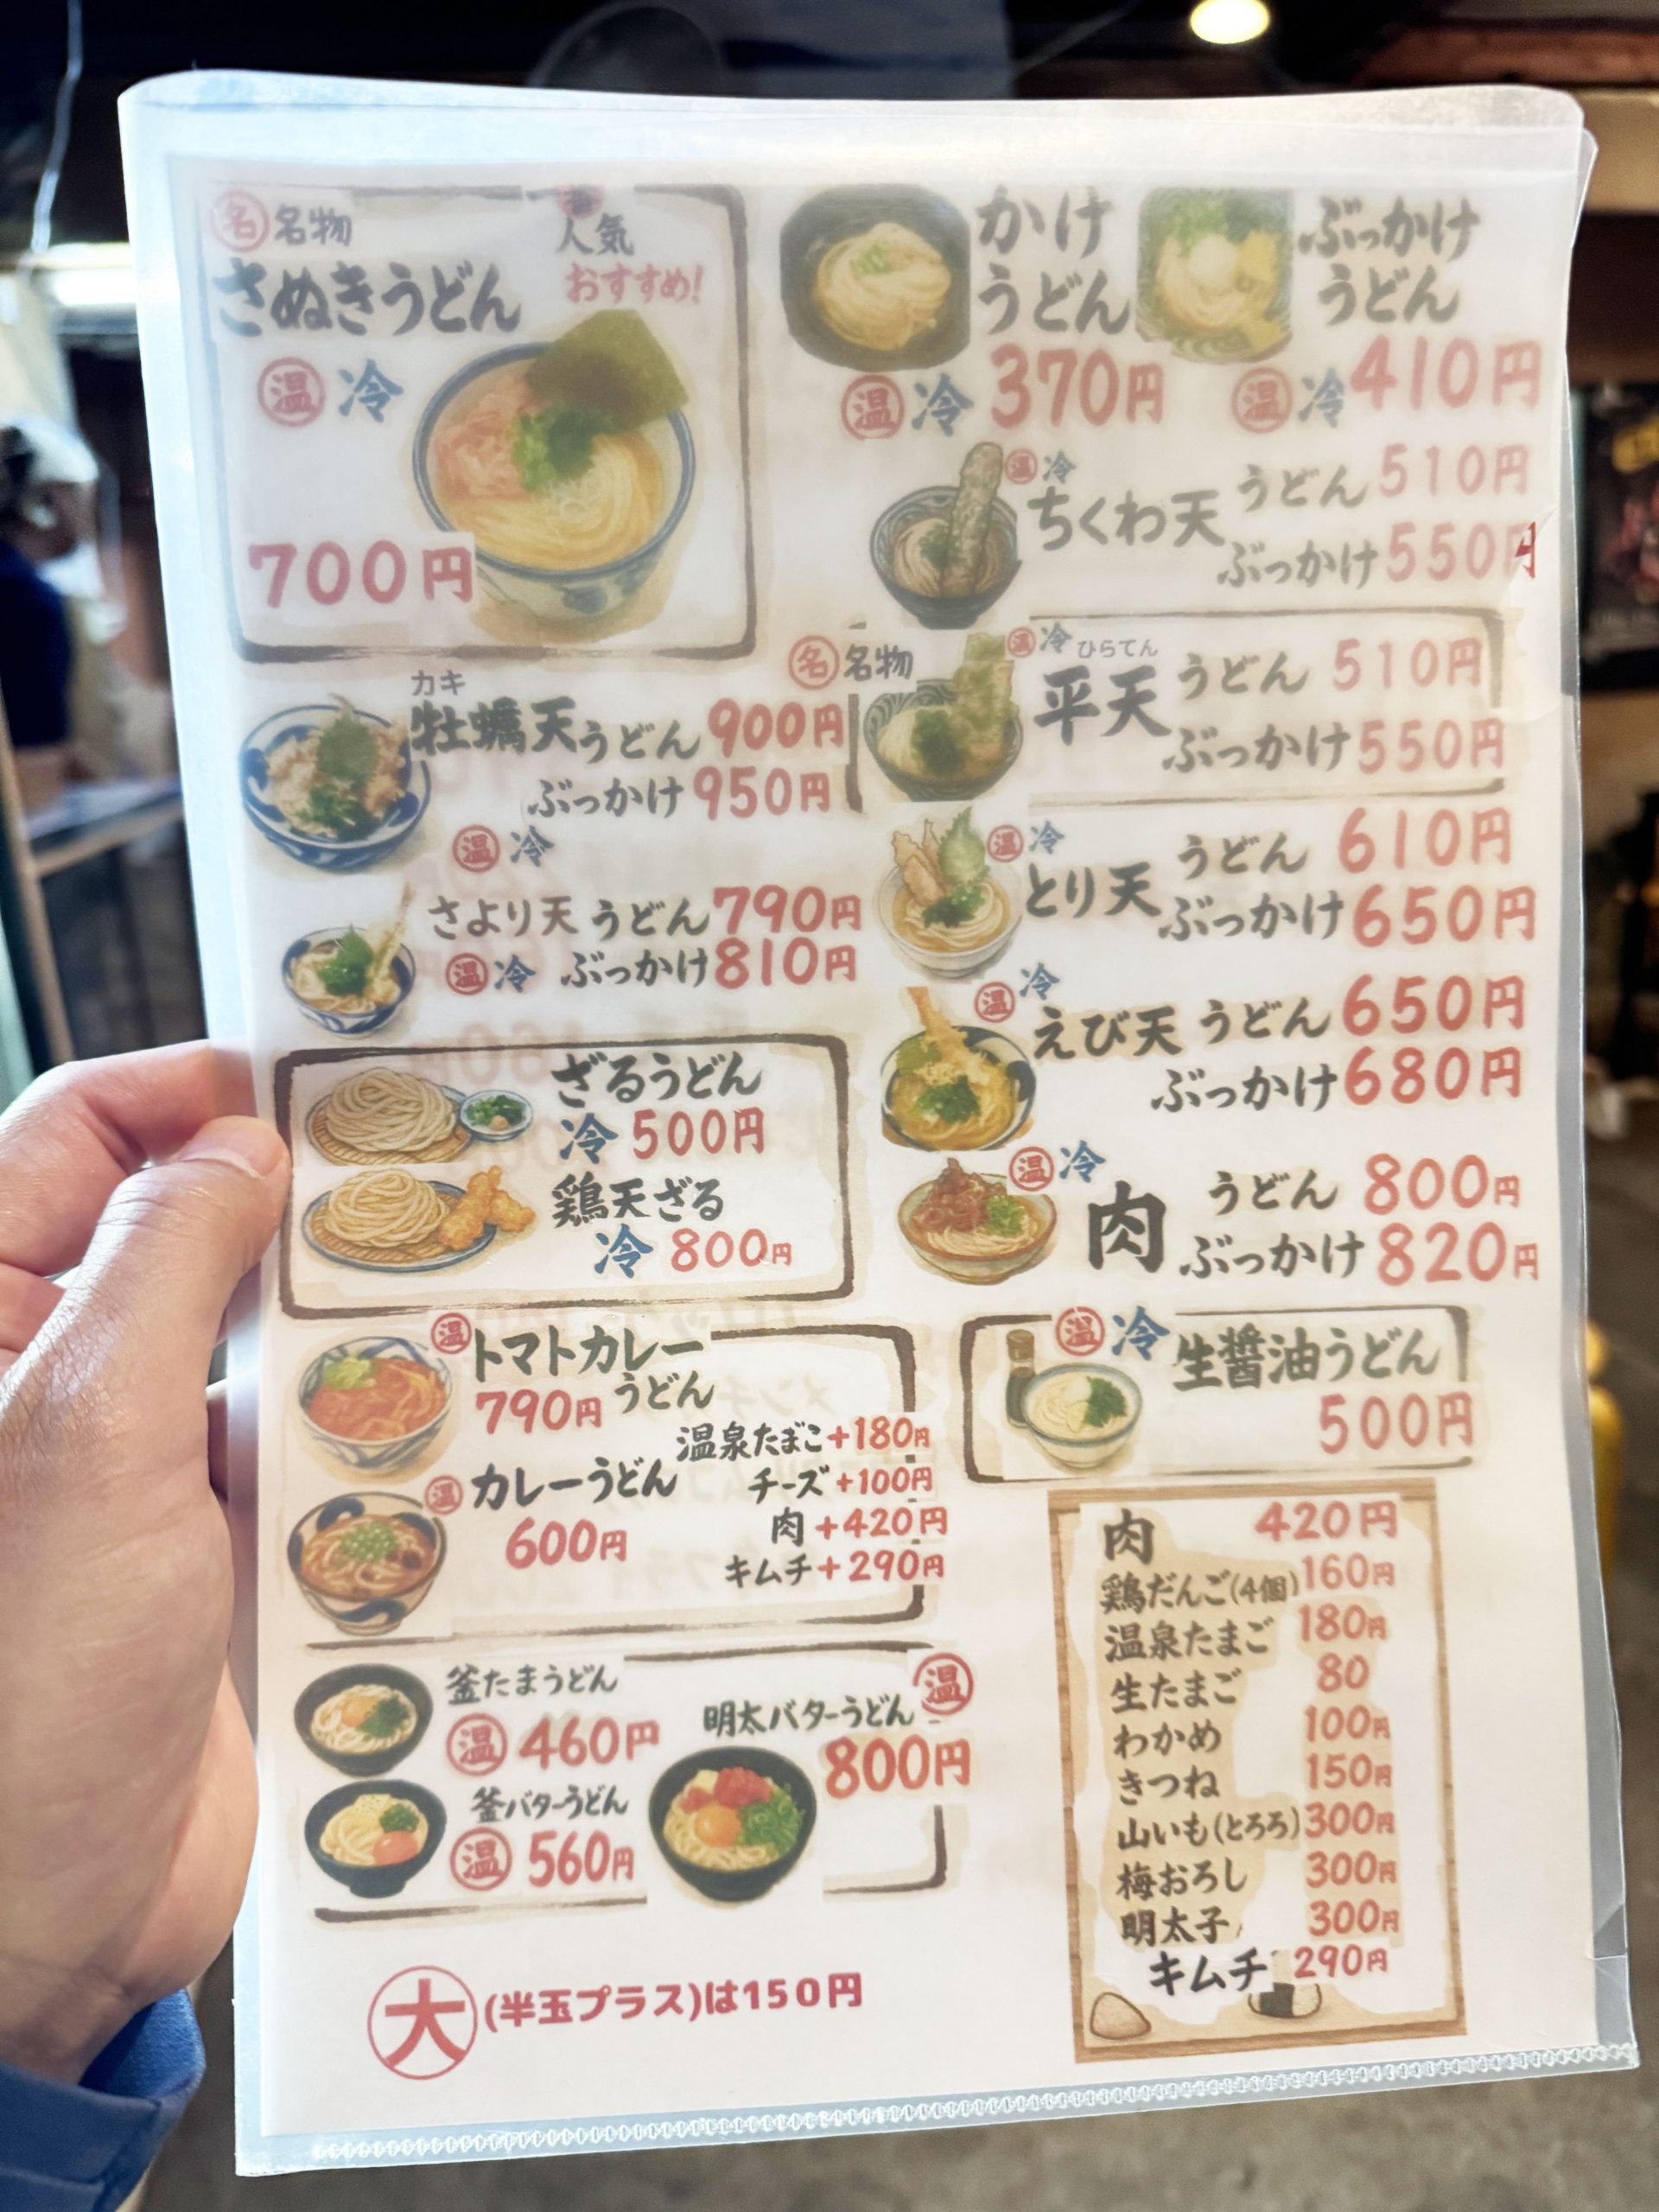 名 名物
人気
さぬきうどん
おすすめ!
温 冷
700円
かけ
うどん
温 冷 370円
ぶっかけ
うどん
温 冷 410円
温 冷
ちくわ天 うどん 510円
ぶっかけ 550円
名 名物
温 冷 ひらてん
平天 うどん 510円
ぶっかけ 550円
カキ
牡蠣天うどん 900円
ぶっかけ 950円
温 冷
温 冷
とり天 うどん 610円
ぶっかけ 650円
さより天 うどん 790円
温 冷 ぶっかけ 810円
温 冷
えび天 うどん 650円
ぶっかけ 680円
ざるうどん
冷 500円
鶏天ざる
冷 800円
温 冷
肉 うどん 800円
ぶっかけ 820円
温 トマトカレー
790円 うどん
温 カレーうどん
600円
温泉たまご +180円
チーズ +100円
肉 +420円
キムチ +290円
温 冷 生醤油うどん
500円
釜たまうどん
温 460円
釜バターうどん
温 560円
明太バターうどん 温
800円
肉 420円
鶏だんご(4個) 160円
温泉たまご 180円
生たまご 80
わかめ 100円
きつね 150円
山いも(とろろ) 300円
梅おろし 300円
明太子 300円
キムチ 290円
大 (半玉プラス)は150円